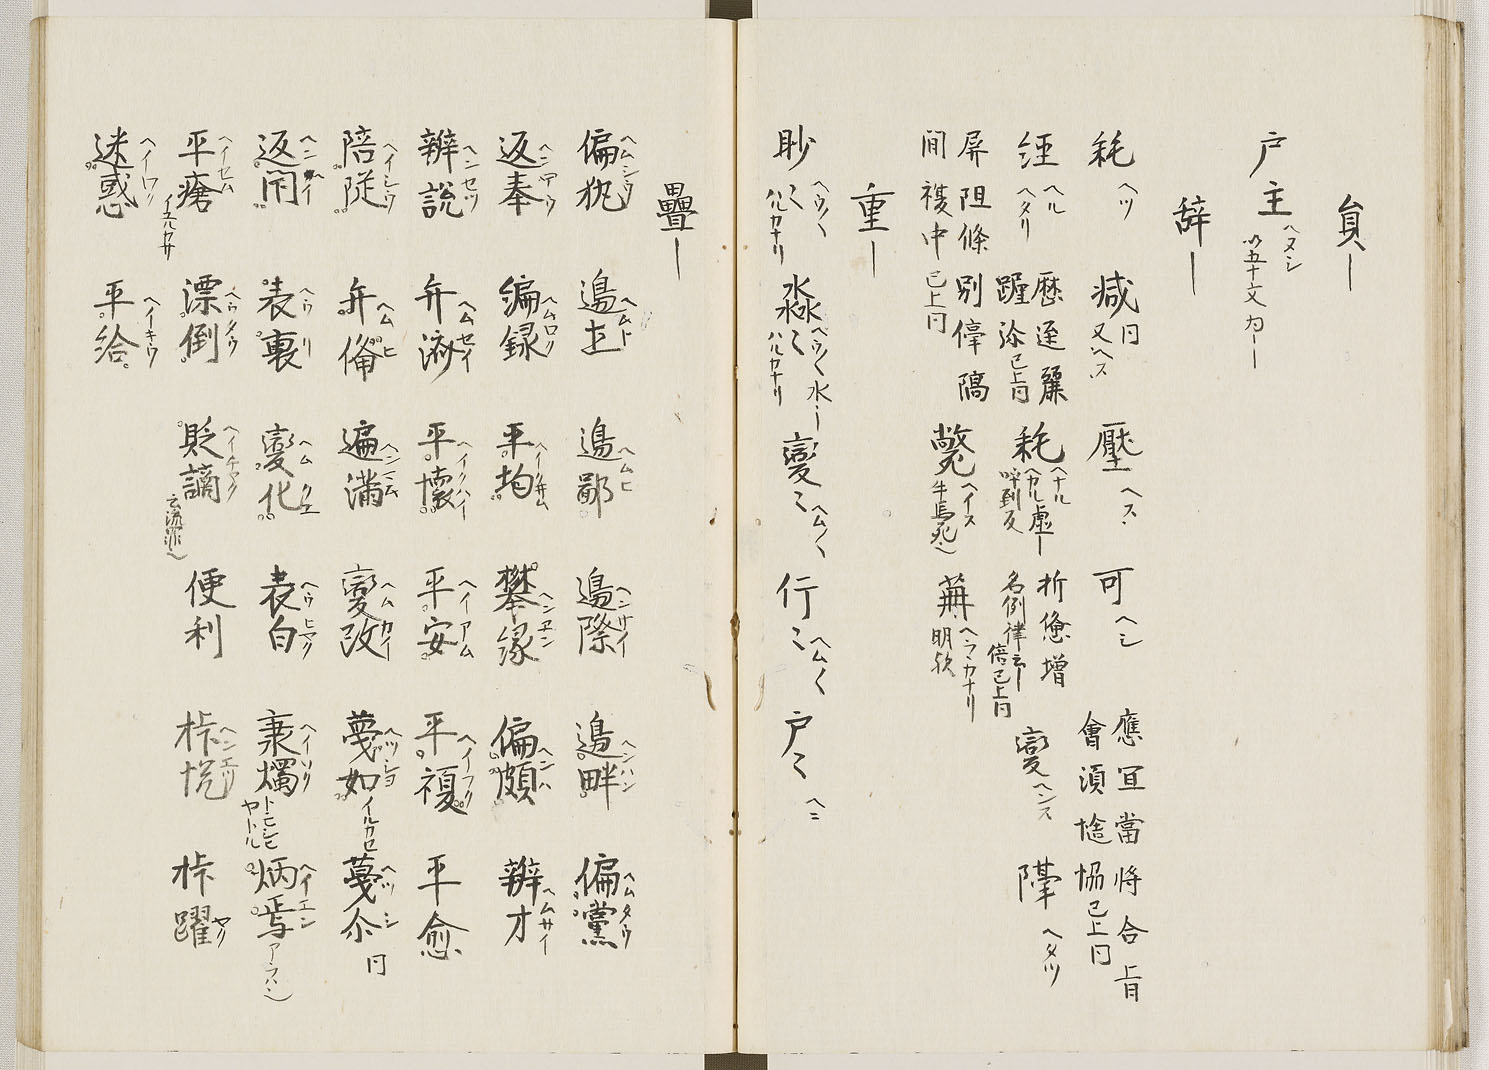 員｜
戸主 ヘヌシ 以五十丈為｜
辞｜
耗 ヘツ 減 同 又ヘス 壓 ヘス 可 ヘシ 應宜當將合旨 會須 協 已上同
經 ヘル ヘタリ 歴 已上同 耗 ヘナル ヘカル 虚｜ 呼到反 折 增 名例律云｜ 倍已上同 變 ヘンス ヘタツ
屏阻條別 隔 間複中 已上同 斃 ヘイス 牛馬死 明
重｜
眇〻 ヘウ〱 ハルカナリ 淼〻 ヘウ〱 水｜ ハルカナリ 變〻 ヘム〱 行〻 ヘム〱 戸〻 ヘ〻
疊｜
偏 邊土 ヘムト 邊鄙 ヘムヒ 邊際 ヘンサイ 邊畔 ヘンハン 偏黨 ヘムタウ
返奉 編録 ヘムロク 平均 攀縁 ヘンエン 偏頗 ヘンハ 辨才 ヘムサイ
辨説 ヘンセツ 弁済 ヘムセイ 平懐 ヘイクハイ 平安 ヘイアム 平復 ヘイフク 平愈
陪従 ヘイシウ 弁 ヘムヒ 遍満 ヘンマム 變改 ヘムカイ 蔑如 ヘツシヨ イルカセ 蔑尒 ヘツシ 同
返閇 ヘンヘイ 表裏 ヘウリ 變化 ヘムクエ 表白 ヘウヒヤク 秉燭 ヘイソク トモシヒ ヤトル 炳焉 ヘイエン アラハ
平瘡 ヘイセム イユルカサ 漂倒 ヘウタウ 貶謫 ヘイチヤク 云流罪 便利 忭悦 ヘンエツ 忭躍 ヤク
迷惑 ヘイワク 平給 ヘイキウ